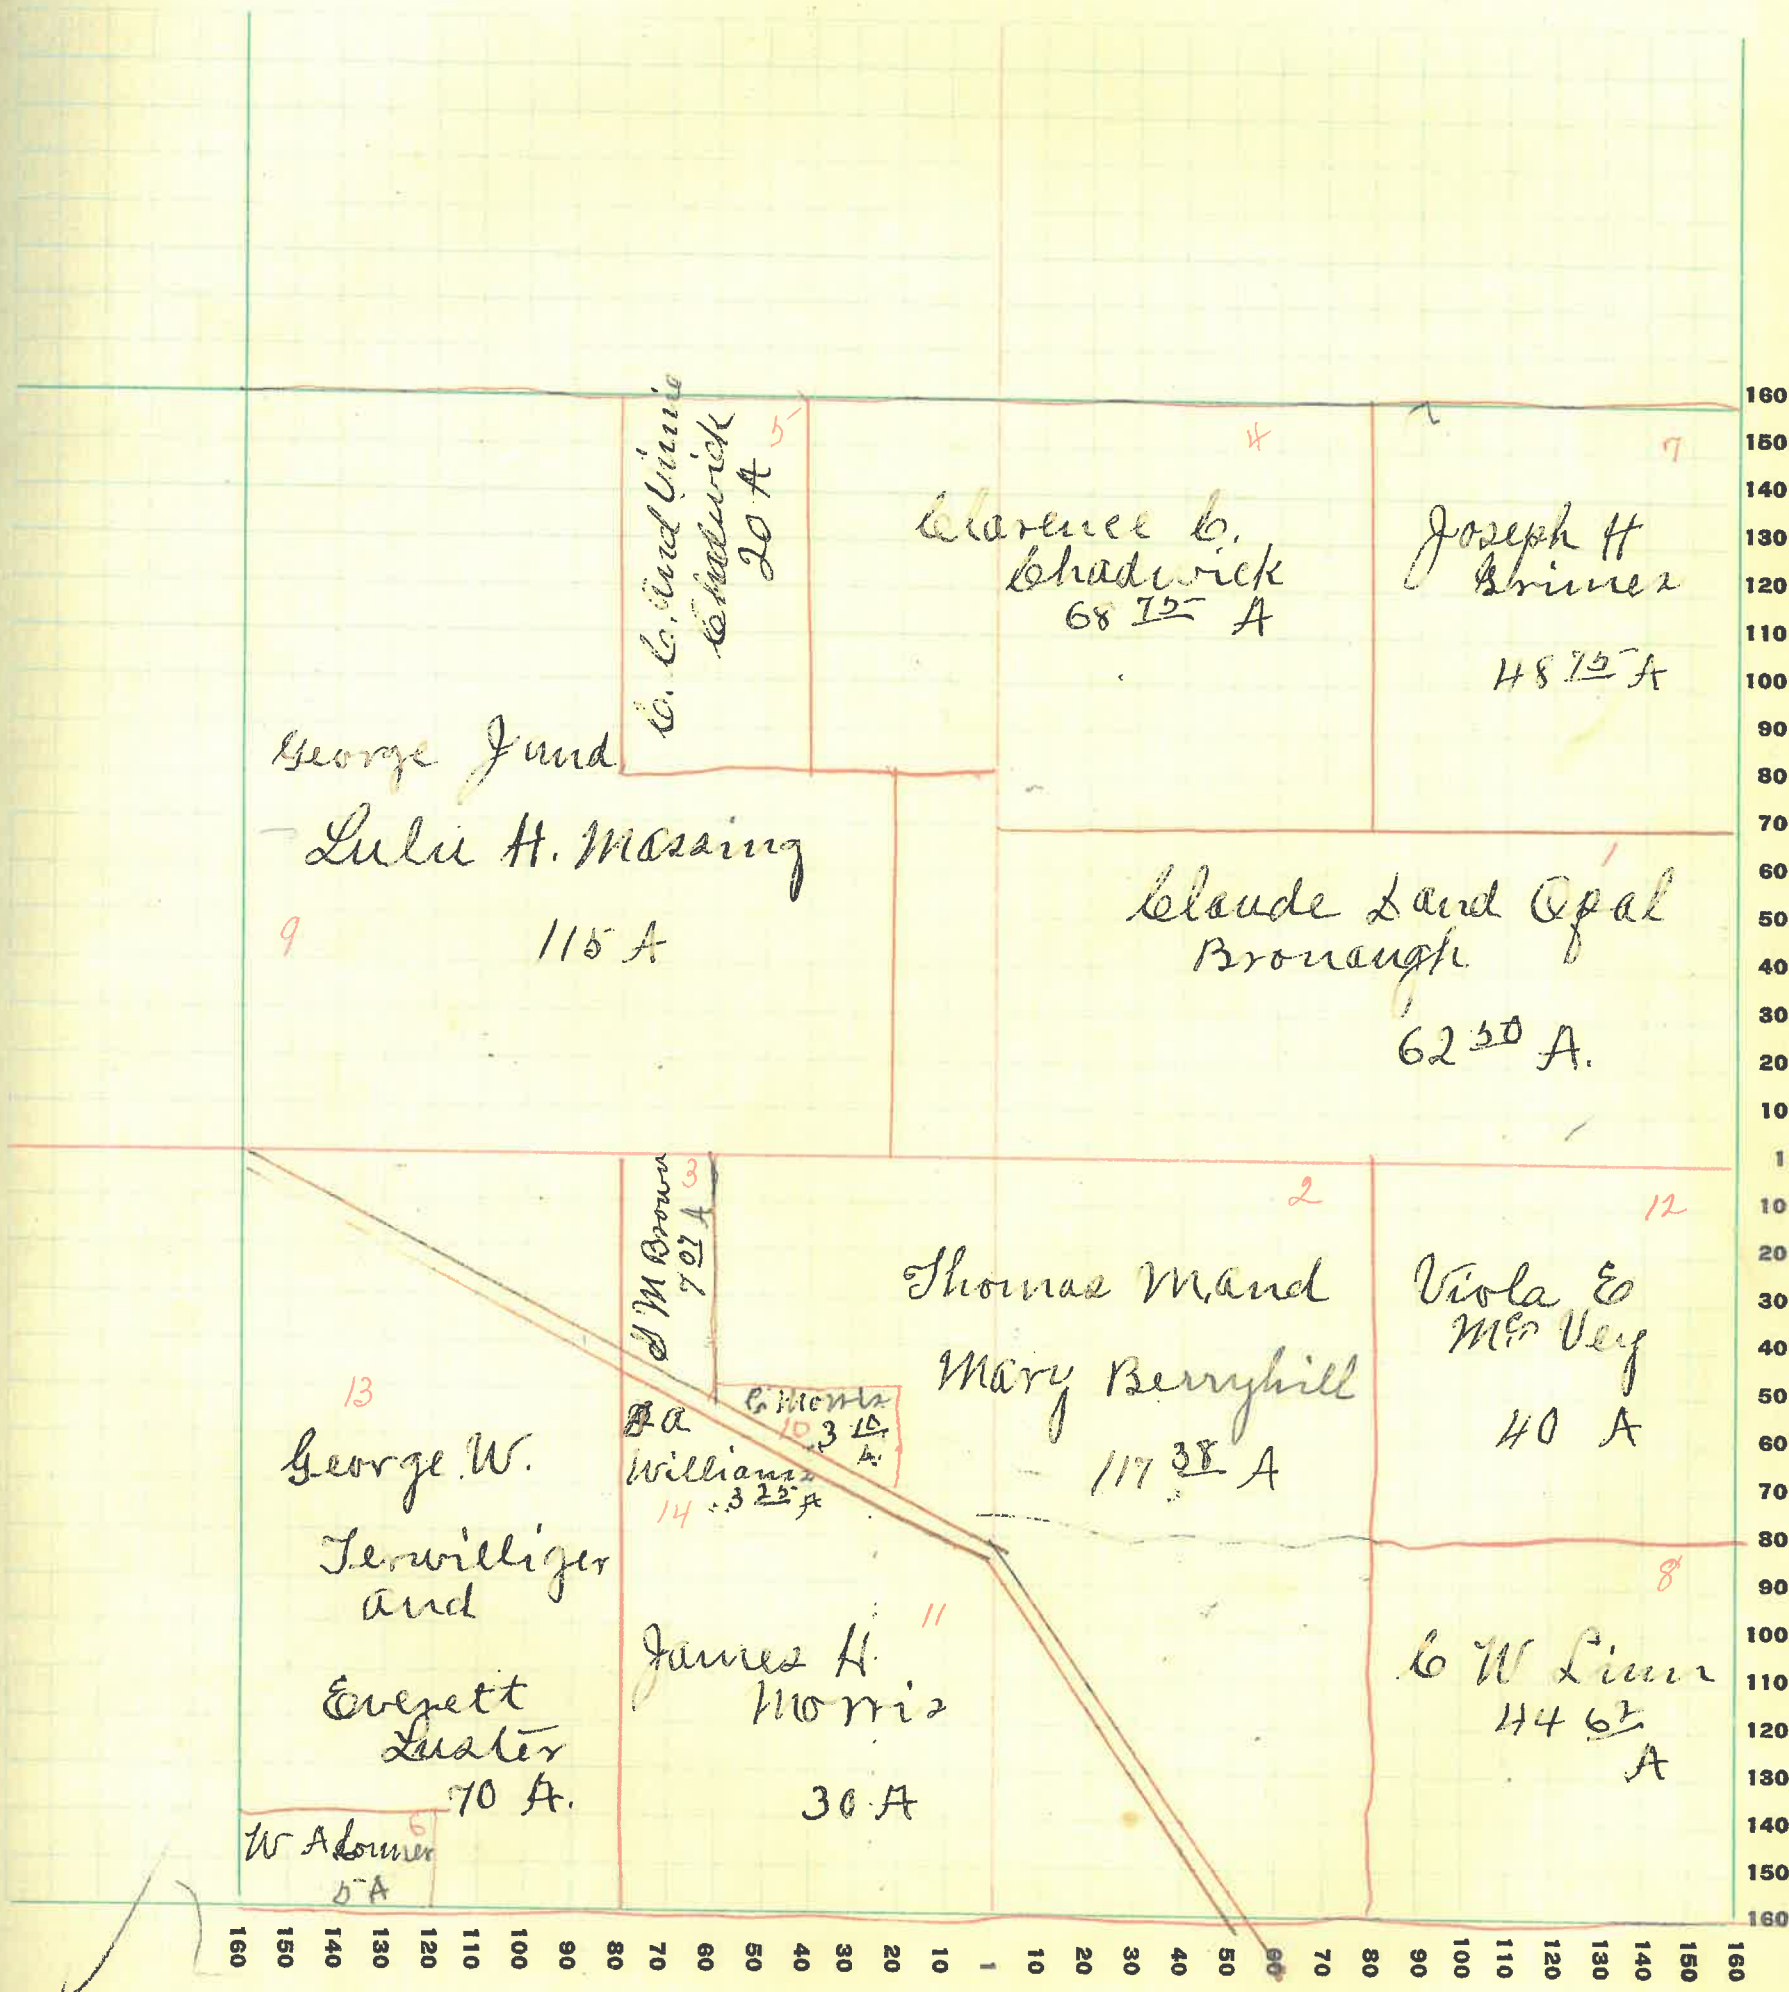 C. C. and Vinnie
Chadwick
20 A
5
4
Clarence C.
Chadwick
68 75 A
7
Joseph H
Grimes
48 75 A
George J and
Lulu H. Massing
9
115 A
1
Claude L and Opal
Bronaugh
62 50 A.
3
S M Brown
7 07 A
2
Thomas M. and
Mary Berryhill
117 38 A
12
Viola E
McVey
40 A
13
George W.
Terwilliger
and
Everett
Luster
70 A.
C Morris
10 3 10
A.
A
Williams
14 3 25 A
11
James H.
Morris
30 A
8
C W Linn
44 62
A
6
W A Conner
5 A
160
150
140
130
120
110
100
90
80
70
60
50
40
30
20
10
1
10
20
30
40
50
60
70
80
90
100
110
120
130
140
150
160
160 150 140 130 120 110 100 90 80 70 60 50 40 30 20 10 1 10 20 30 40 50 60 70 80 90 100 110 120 130 140 150 160